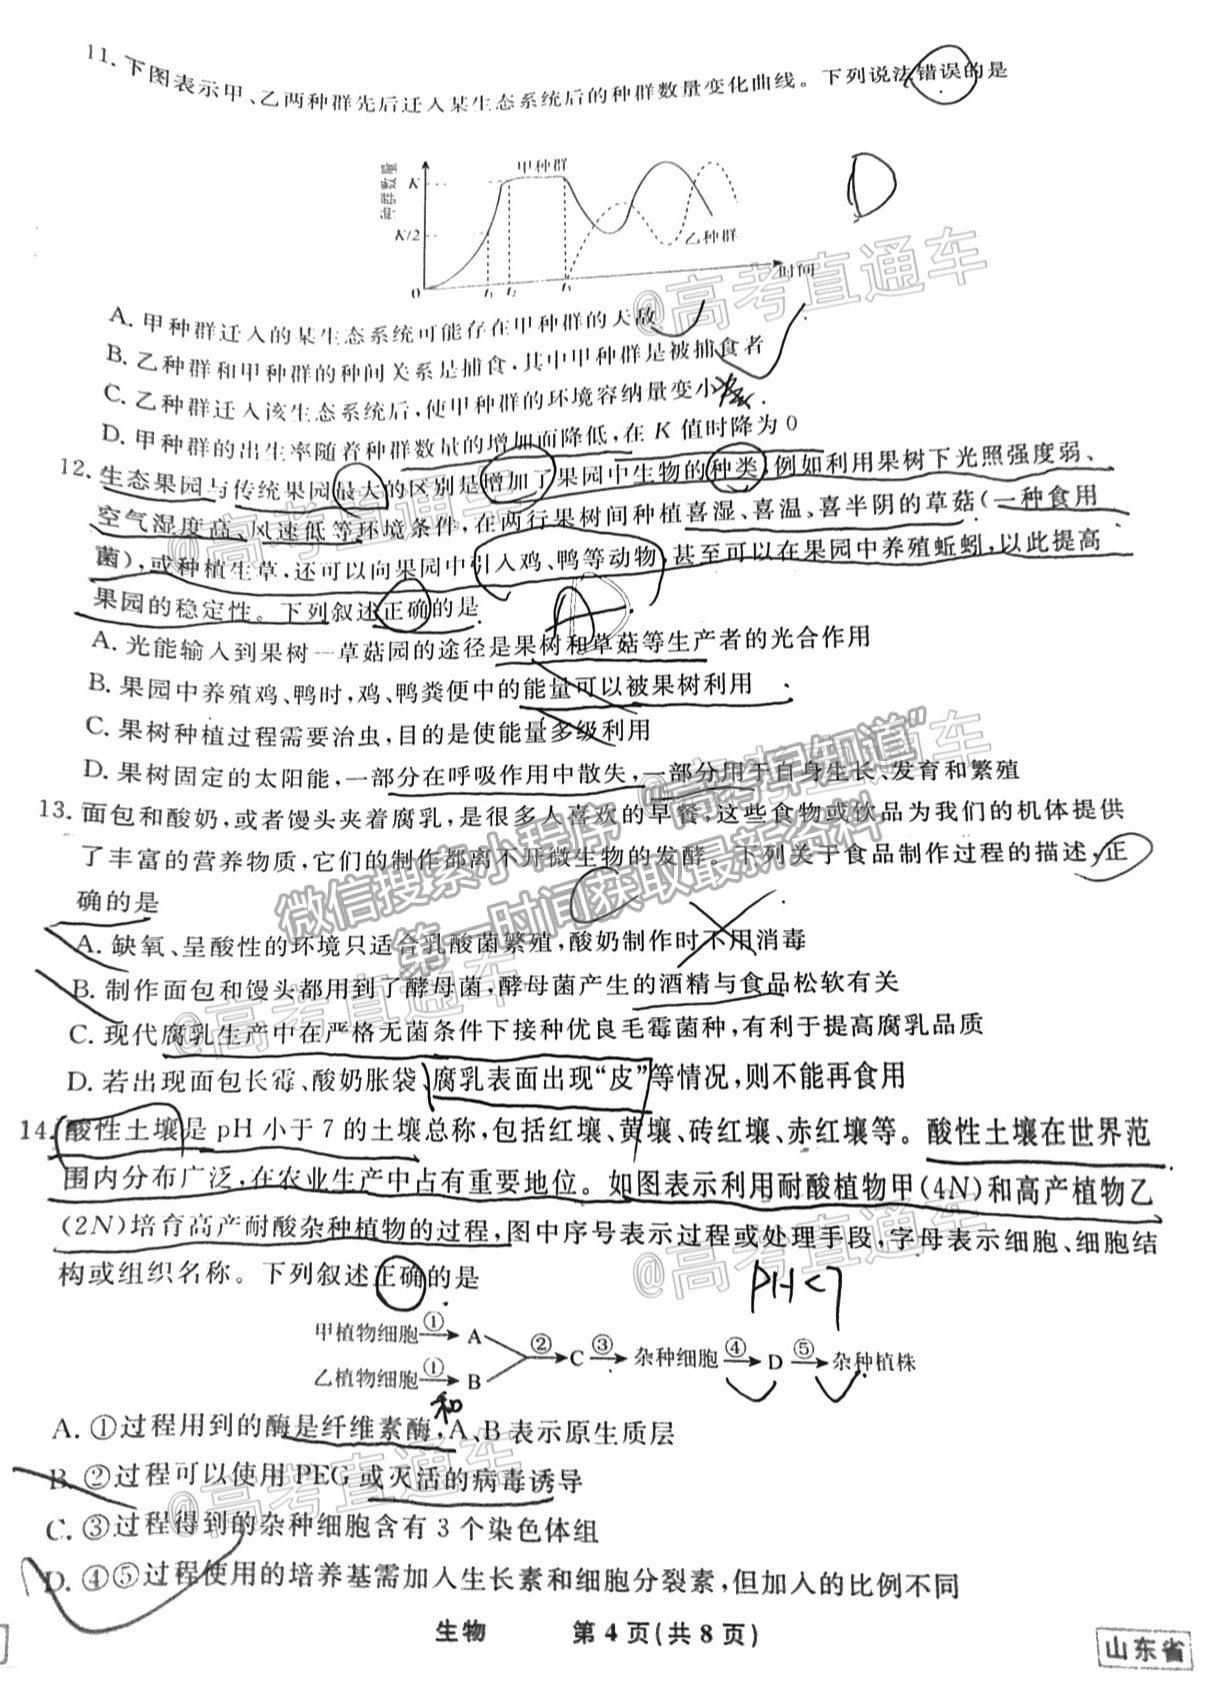 11. 下图表示甲、乙两种群先后迁入某生态系统后的种群数量变化曲线。下列说法错误的是
种群数量
甲种群
K
K/2
乙种群
0
t₁
t₂
t₃
时间
D
@高考直通车
A. 甲种群迁入的某生态系统可能存在甲种群的天敌
B. 乙种群和甲种群的种间关系是捕食,其中甲种群是被捕食者
C. 乙种群迁入该生态系统后,使甲种群的环境容纳量变小
D. 甲种群的出生率随着种群数量的增加而降低,在 K 值时降为 0
12. 生态果园与传统果园最大的区别是增加了果园中生物的种类,例如利用果树下光照强度弱、
空气湿度高、风速低等环境条件,在两行果树间种植喜湿、喜温、喜半阴的草菇(一种食用
菌),或种植生草,还可以向果园中引入鸡、鸭等动物,甚至可以在果园中养殖蚯蚓,以此提高
果园的稳定性。下列叙述正确的是
@高考直通车
A. 光能输入到果树—草菇园的途径是果树和草菇等生产者的光合作用
B. 果园中养殖鸡、鸭时,鸡、鸭粪便中的能量可以被果树利用
C. 果树种植过程需要治虫,目的是使能量多级利用
D. 果树固定的太阳能,一部分在呼吸作用中散失,一部分用于自身生长、发育和繁殖
@高考直通车
微信搜索小程序“高考早知道”
第一时间获取最新资料
13. 面包和酸奶,或者馒头夹着腐乳,是很多人喜欢的早餐,这些食物或饮品为我们的机体提供
了丰富的营养物质,它们的制作都离不开微生物的发酵。下列关于食品制作过程的描述,正
确的是
A. 缺氧、呈酸性的环境只适合乳酸菌繁殖,酸奶制作时不用消毒
B. 制作面包和馒头都用到了酵母菌,酵母菌产生的酒精与食品松软有关
@高考直通车
C. 现代腐乳生产中在严格无菌条件下接种优良毛霉菌种,有利于提高腐乳品质
D. 若出现面包长霉、酸奶胀袋、腐乳表面出现“皮”等情况,则不能再食用
14. 酸性土壤是 pH 小于 7 的土壤总称,包括红壤、黄壤、砖红壤、赤红壤等。酸性土壤在世界范
围内分布广泛,在农业生产中占有重要地位。如图表示利用耐酸植物甲(4N)和高产植物乙
(2N)培育高产耐酸杂种植物的过程,图中序号表示过程或处理手段,字母表示细胞、细胞结
构或组织名称。下列叙述正确的是
@高考直通车
PH<7
甲植物细胞 ① A
② C ③ 杂种细胞 ④ D ⑤ 杂种植株
乙植物细胞 ① B
和
A. ①过程用到的酶是纤维素酶,A、B表示原生质层
B. ②过程可以使用 PEG 或灭活的病毒诱导
@高考直通车
C. ③过程得到的杂种细胞含有 3 个染色体组
D. ④⑤过程使用的培养基需加入生长素和细胞分裂素,但加入的比例不同
生物 第 4 页(共 8 页)
山东省